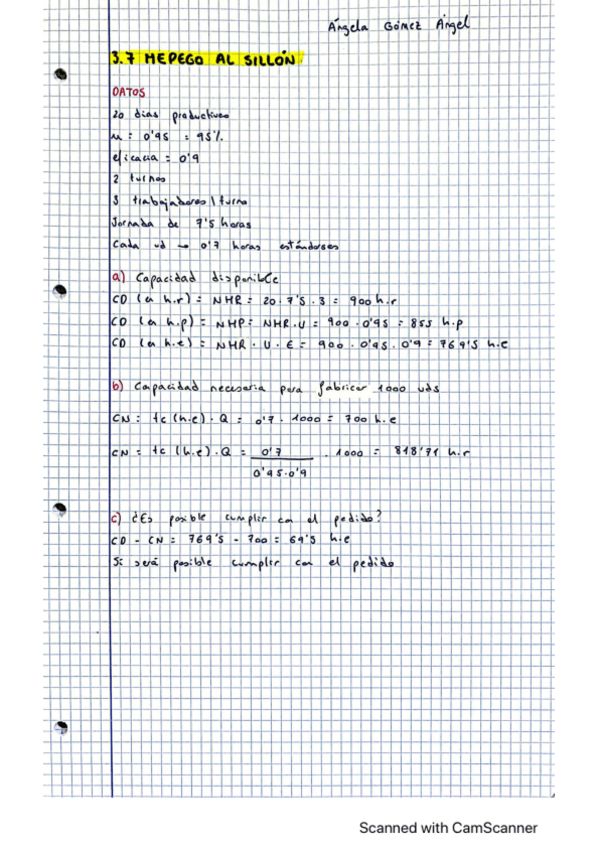 Ángela Gómez Ángel
3.7 MEPEGO AL SILLÓN
DATOS
20 días productivos
u = 0'95 = 95%
eficacia = 0'9
2 turnos
3 trabajadores \ turno
Jornada de 7'5 horas
Cada ud → 0'7 horas estándares
a) Capacidad disponible
CD (en h.r) = NHR = 20 · 7'5 · 3 = 900 h.r
CD (en h.p) = NHP = NHR · U = 900 · 0'95 = 855 h.p
CD (en h.e) = NHR · U · E = 900 · 0'95 · 0'9 = 769'5 h.e
b) Capacidad necesaria para fabricar 1000 uds
CN = tc (h.e) · Q = 0'7 · 1000 = 700 h.e
CN = tc (h.e) · Q = 0'7 / 0'95·0'9 · 1000 = 818'71 h.r
c) ¿Es posible cumplir con el pedido?
CD - CN = 769'5 - 700 = 69'5 h.e
Si será posible cumplir con el pedido
Scanned with CamScanner